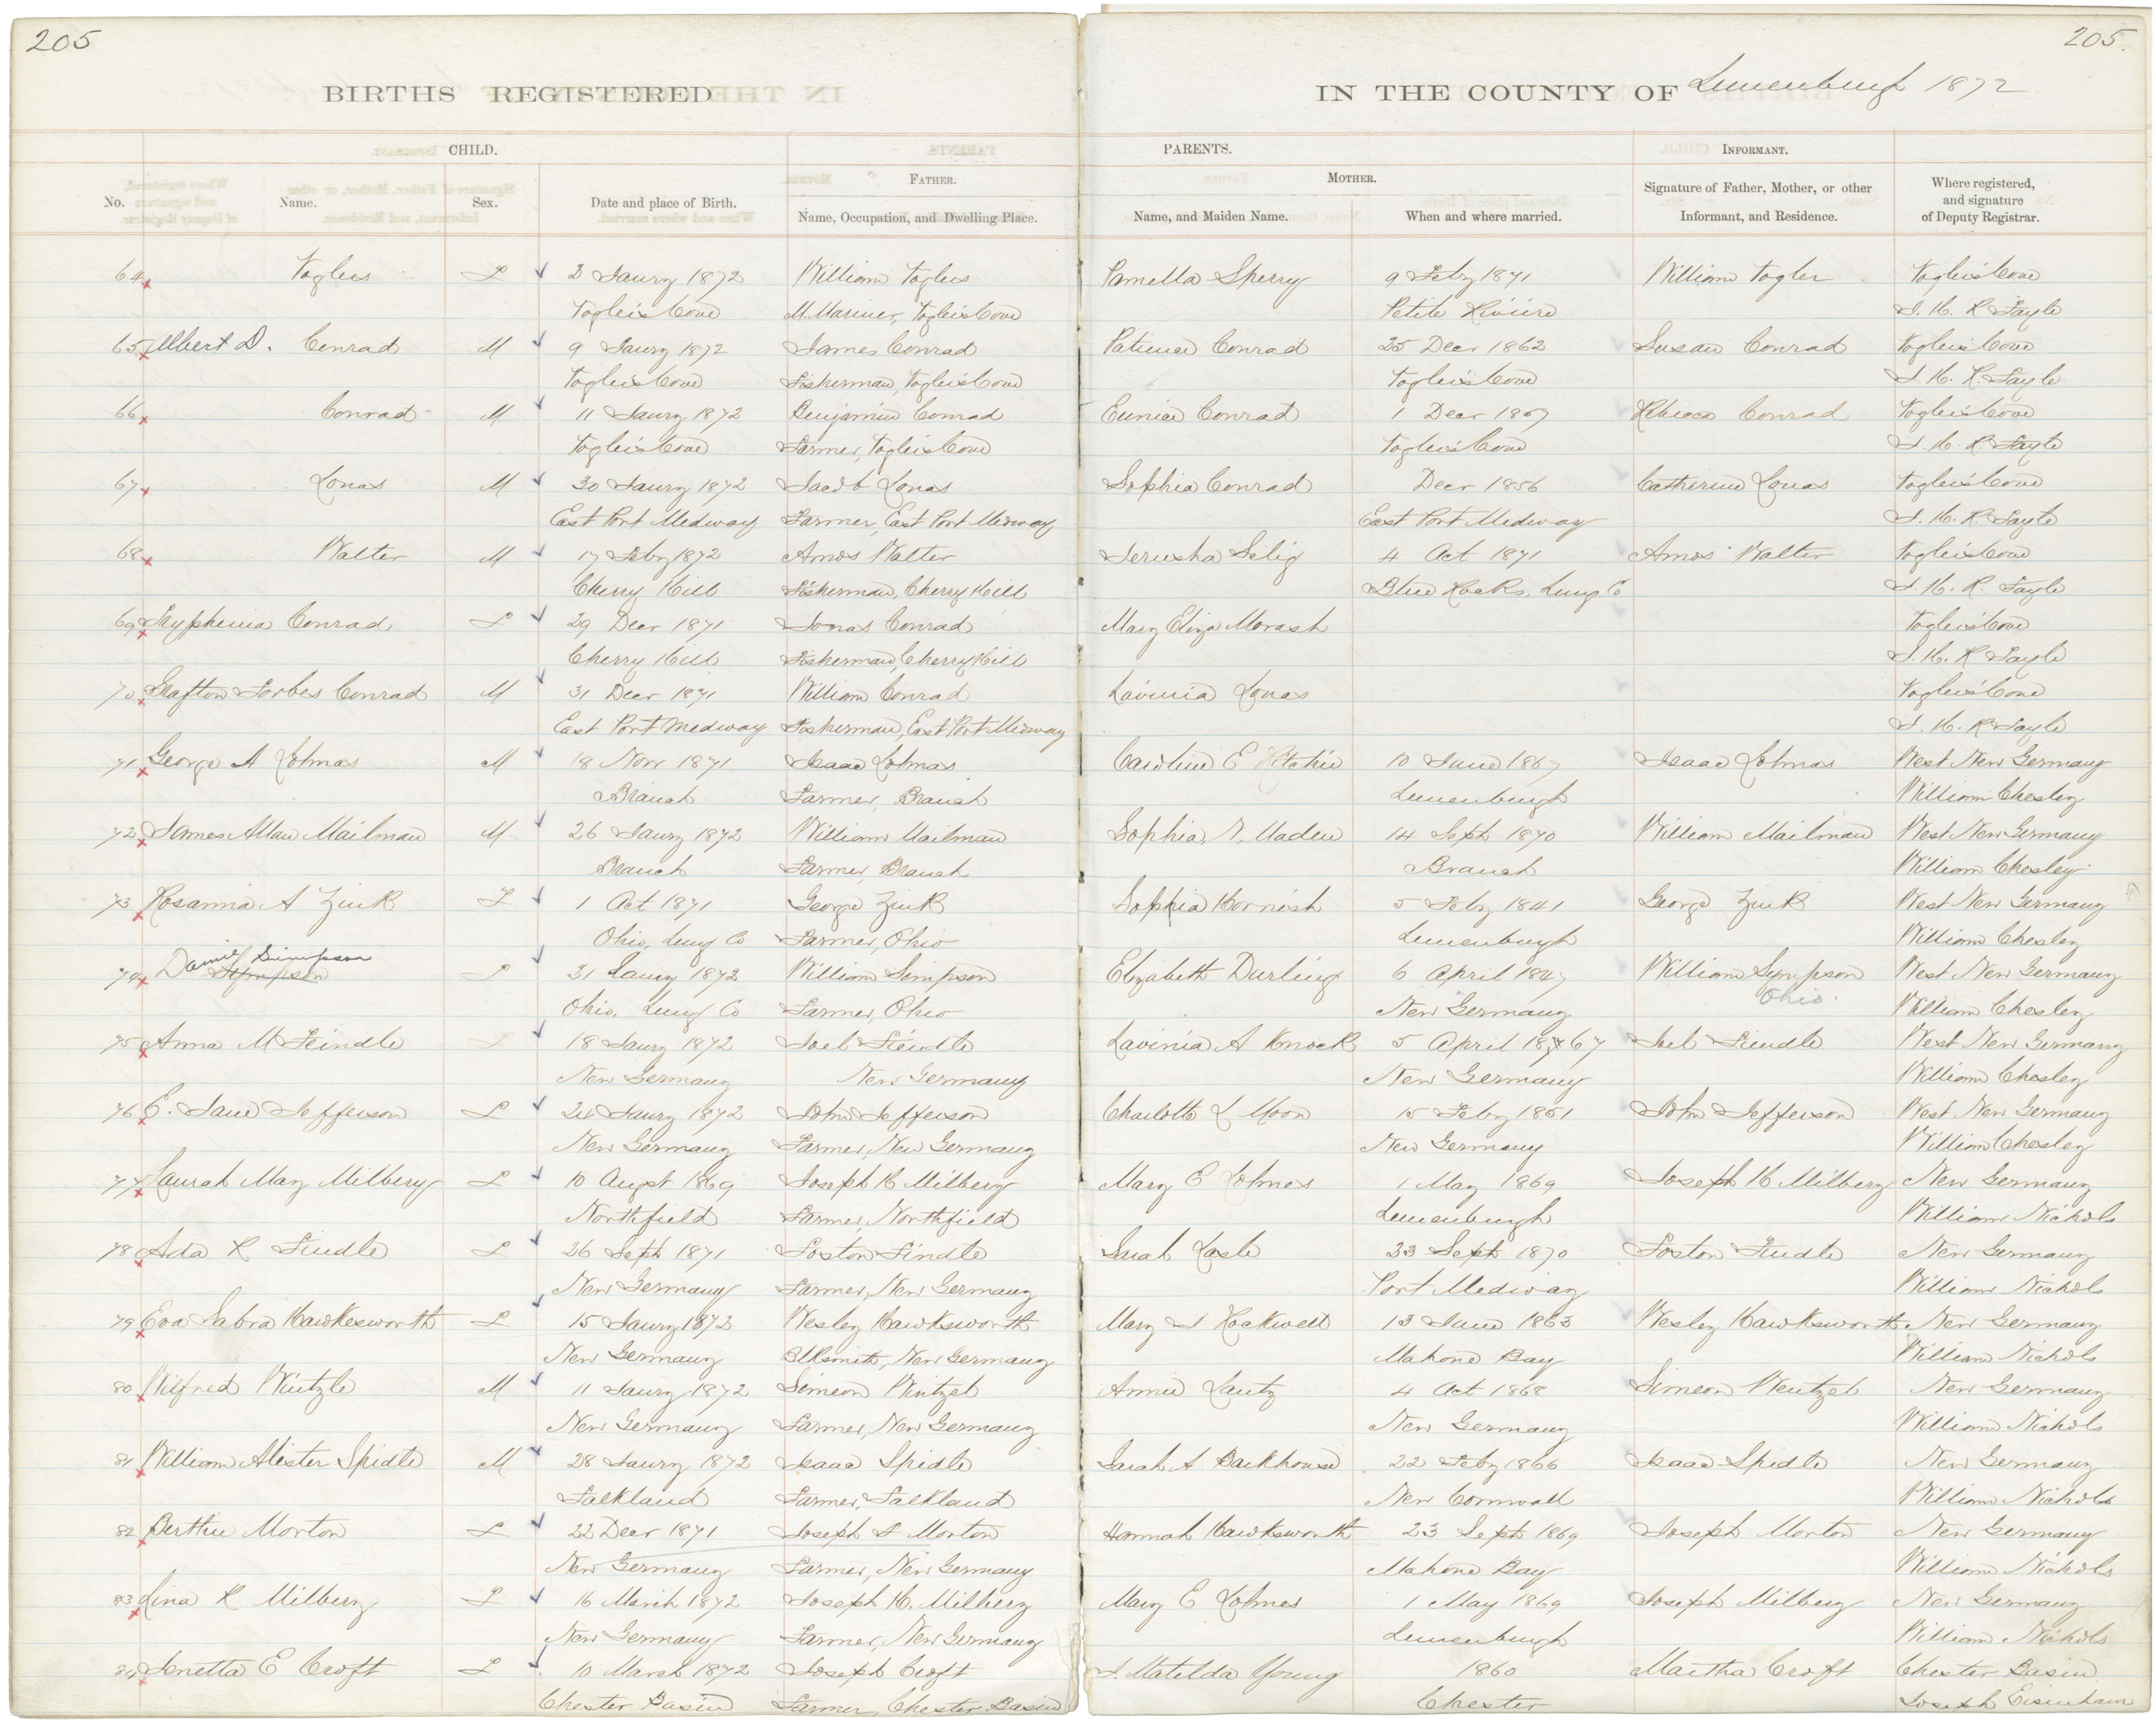 205
205.
BIRTHS REGISTERED
IN THE COUNTY OF Lunenburgh 1872
CHILD.
PARENTS.
INFORMANT.
No.
Name.
Sex.
Date and place of Birth.
FATHER.
Name, Occupation, and Dwelling Place.
MOTHER.
Name, and Maiden Name.
When and where married.
Signature of Father, Mother, or other
Informant, and Residence.
Where registered,
and signature
of Deputy Registrar.
64 Voglers F 2 Jaury 1872 William Voglers Pamella Sperry 9 Feby 1871 William Vogler Voglers Cove
Voglers Cove M. Mariner, Voglers Cove Petite Riviere
65 Albert D. Conrad M 9 Jaury 1872 James Conrad Patience Conrad 25 Decr 1862 Susan Conrad Voglers Cove
Voglers Cove Fisherman, Voglers Cove Voglers Cove
66 Conrad M 11 Jaury 1872 Benjamin Conrad Eunice Conrad 1 Decr 1867 Rebecca Conrad Voglers Cove
Voglers Cove Farmer, Voglers Cove Voglers Cove
67 Lonas M 30 Jaury 1872 Jacob Lonas Sophia Conrad Decr 1856 Catherine Lonas Voglers Cove
East Port Medway Farmer, East Port Medway East Port Medway
68 Walter M 17 Feby 1872 Amos Walter Jerusha Selig 4 Oct 1871 Amos Walter Voglers Cove
Cherry Hill Fisherman, Cherry Hill Blue Rocks, Lung Co
69 Tryphenia Conrad F 29 Decr 1871 Jonas Conrad Mary Eliza Morash Voglers Cove
Cherry Hill Fisherman, Cherry Hill
70 Grafton Forbes Conrad M 31 Decr 1871 William Conrad Lavinia Lonas Voglers Cove
East Port Medway Fisherman, East Port Medway
71 George A Lohnas M 18 Novr 1871 Isaac Lohnas Caroline E Ritchie 10 June 1867 Isaac Lohnas West New Germany
Branch Farmer, Branch Lunenburgh William Chesley
72 James Allan Mailman M 26 Jaury 1872 William Mailman Sophia, N. Maden 14 Sept 1870 William Mailman West New Germany
Branch Farmer, Branch Branch William Chesley
73 Rosanna A Zink F 1 Oct 1871 George Zink Sophia Hornish 5 Feby 1841 George Zink West New Germany
Ohio, Lung Co Farmer, Ohio Lunenburgh William Chesley
74 Daniel Simpson Sympson F 31 Jaury 1872 William Simpson Elizabeth Darling 6 April 1847 William Sympson West New Germany
Ohio, Lung Co Farmer, Ohio New Germany Ohio. William Chesley
75 Anna M Feindle F 18 Jaury 1872 Joel Feindle Lavinia A Knock 5 April 1867 Joel Findle West New Germany
New Germany New Germany New Germany William Chesley
76 E. Jane Jefferson F 24 Jaury 1872 John Jefferson Charlotte L Moon 15 Feby 1851 John Jefferson West New Germany
New Germany Farmer, New Germany New Germany William Chesley
77 Laurah May Milbery F 10 Augst 1869 Joseph H Milbery Mary E Lohnes 1 May 1869 Joseph H Milbery New Germany
Northfield Farmer, Northfield Lunenburgh William Nichols
78 Ada R Findle F 26 Sept 1871 Foston Findle Sarah Lasle 23 Sept 1870 Foston Findle New Germany
New Germany Farmer, New Germany Port Medway William Nichols
79 Eva Sabra Hawkesworth F 15 Jaury 1872 Wesley Hawksworth Mary J Rockwell 13 June 1863 Wesley Hawksworth New Germany
New Germany Blksmith, New Germany Mahone Bay William Nichols
80 Wilfred Wintzle M 11 Jaury 1872 Simeon Wintzel Annie Lantz 4 Oct 1868 Simeon Wentzel New Germany
New Germany Farmer, New Germany New Germany William Nichols
81 William Alister Spidle M 28 Jaury 1872 Isaac Spidle Sarah A Barkhouse 22 Feby 1866 Isaac Spidle New Germany
Falkland Farmer, Falkland New Cornwall William Nichols
82 Berthie Morton F 22 Decr 1871 Joseph F Morton Hannah Hawksworth 23 Sept 1869 Joseph Morton New Germany
New Germany Farmer, New Germany Mahone Bay William Nichols
83 Lina R Milbery F 16 March 1872 Joseph H. Milbery Mary E Lohnes 1 May 1869 Joseph Milbery New Germany
New Germany Farmer, New Germany Lunenburgh William Nichols
84 Jenetta E Croft F 10 March 1872 Joseph Croft J. Matilda Young 1860 Martha Croft Chester Basin
Chester Basin Farmer, Chester Basin Chester Joseph Eisenhaur